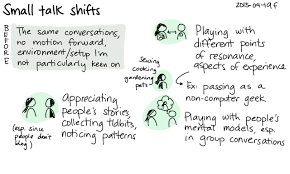 Small talk shifts
2013-04-19F
BEFORE
The same conversations,
no motion forward,
environment/setup I'm
not particularly keen on
Playing with
different points
of resonance,
aspects of experience.
Sewing
cooking
gardening
Ex: passing as a
non-computer geek
Appreciating
people's stories,
collecting tidbits,
noticing patterns
(esp. since
people don't
Playing with people's
mental models, esp.
in group conversations